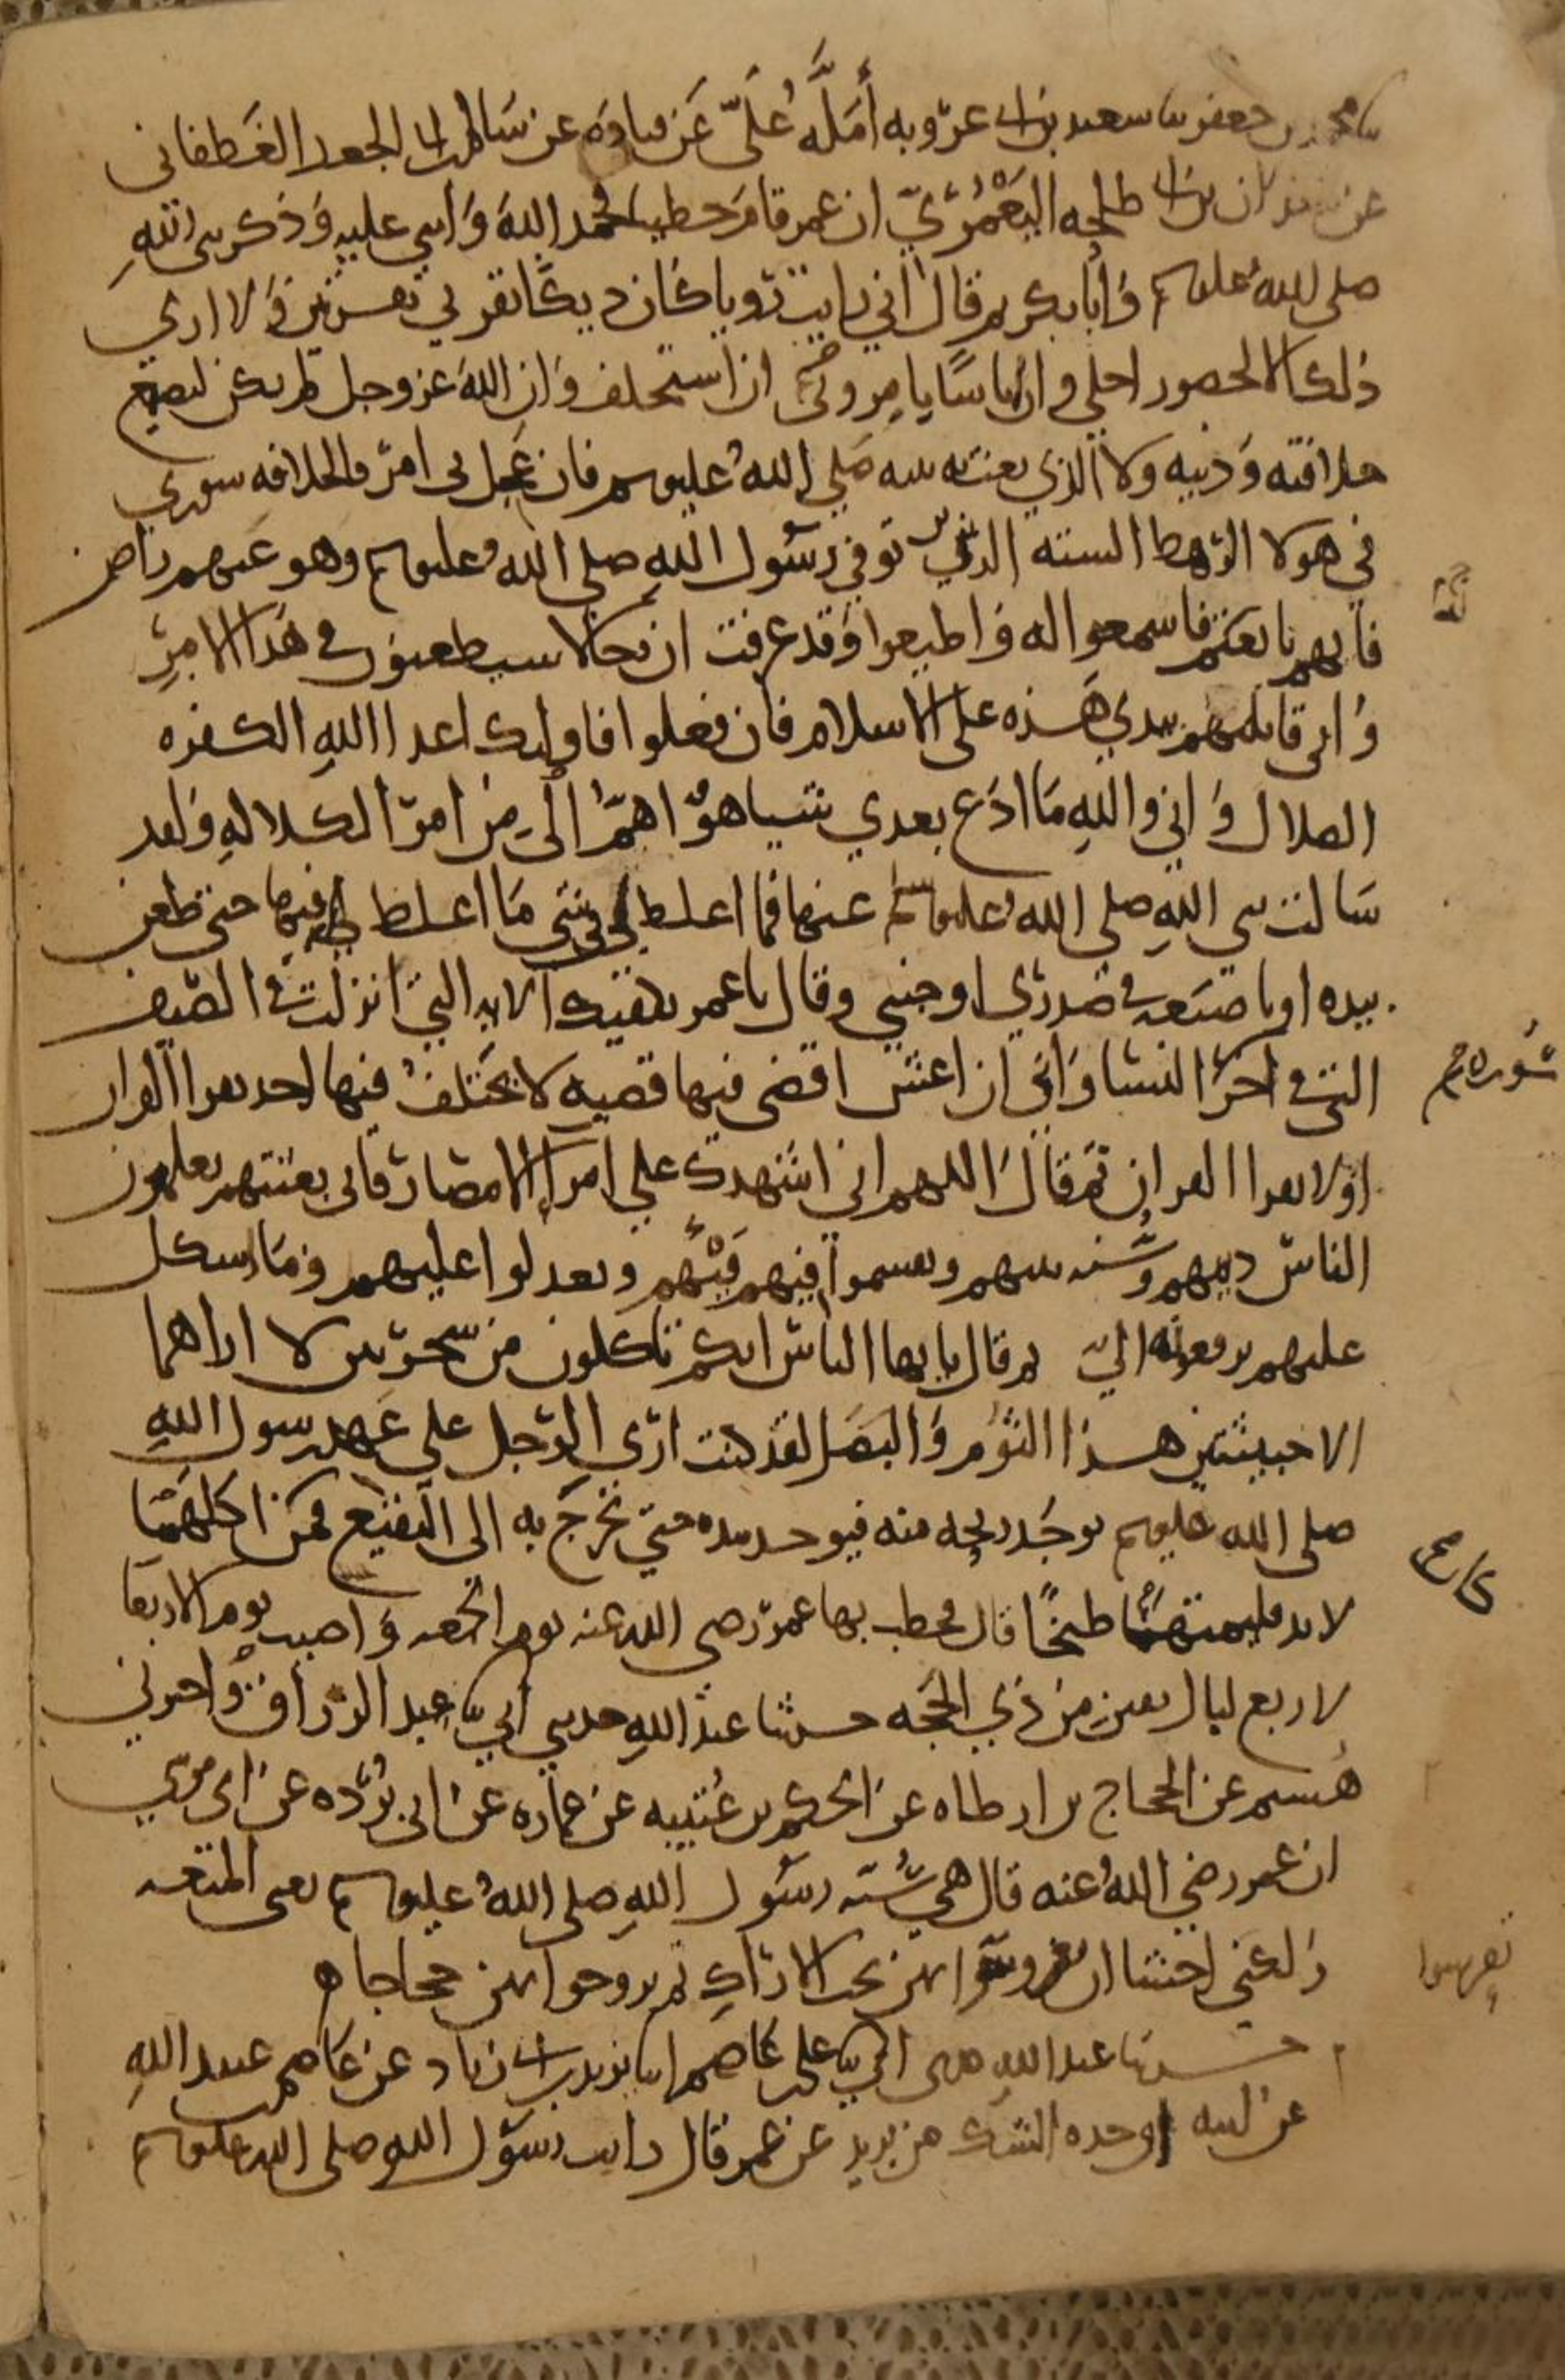 ثنا محمد بن جعفر ثنا سعيد بن ابي عروبه أمَلَّهُ عَلَيَّ عَن قتاده عن سَالم بن ابي الجعد الغَطَفاني
عن معدان بن ابي طلحه اليَعْمُرِيّ ان عمر قام خطيبا فحمد اللهَ وَاثنى عليه وَذكر نبى اللهِ
صلى اللهُ عليه وسلم وَأبا بكر ثم قال اني رايت رؤيا كَان ديكًا نقرني نقرتين وَلا ارى
ذلك الا لحضور اجلي وان ناسًا يامرونى ان استخلف وَان اللهَ عز وجل لم يكن ليضيع
خلافته وَدينه ولا الذي بعث به نبيه صَلى اللهُ عليه وسلم فان عَجل بى امرٌ فالخلافه شورى
في هولا الرهط الستة الذين توفي رسُول اللهِ صلى اللهُ عليه وسلم وهو عَنهم راض
فايهم بايعتم فاسمعوا له وَاطيعوا وَقد عرفت ان رجالا سيطعنون في هَذا الامرِ
وَانى قاتلتهم بيدي هَذه على الاسلام فان فعلوا فاوليك اعدا اللهِ الكفره
الضلال وَاني واللهِ مَا ادَع بعدي شيا هوَ اهمُّ الَى من امر الكلالهِ وَلقد
سَالت نبي اللهِ صلى اللهُ عليه وسلم عنها فما اغلظ لي في شي مَا اغلظ لي فيها حتى طعن
بيده او باصبَعه في صَدري او جنبي وقال يا عمر تكفيك الايه التي انزلت في الصّيف
التي في اخر النسا وَاني ان اعش اقضى فيها قضيه لا يختلفُ فيها احد يقرا القران
اوَلا يقرا القران ثم قالَ اللهم اني اشهدك علي امرآ الامصَار فانى بعثتهم يعلمون
الناسَ دينهم وَسُنه نبيهم ويقسموا فيهم فَيْئَهم ويعدلوا عليهم وَمَا اشكل
عليهم يرفعونه اليّ ثم قال يا يها الناسَ انكم تاكلون من شجرتين لا اراهما
الا خبيثتين هذا الثوم وَالبَصَل لقد كنت ارَى الرجل على عَهد رسول اللهِ
صلى الله عليه وسلم يوجَد ريحه منه فيوخذ بيده حتى يخرجَ به الى البَقيع فمن اكلهُمَا
لا بد فليمتهمَا طبخًا قال فخطب بها عمرَ رضى الله عنه يوم الجمعه وَاصيب يوم الاربعَا
لاربع ليال بقين من ذي الحجّه حدثنا عبدُ اللهِ حدثني ابي ثنا عبد الرزاق وَاخبرني
هُشيم عن الحجاج بن ارطاه عن الحكم بن عُتيبه عن عماره عن ابى بُرْده عن ابى موسَى
ان عمر رضي اللهُ عنه قال هي سُنة رسُول اللهِ صلى اللهُ عليه وسلم يعني المتعه
وَلكني اخشا ان يعرسوا بهن تحت الارَاكِ ثم يروحوا بهن حجاجا ه
حدثنا عبد اللهِ حدثني ابي ثنا على بن عَاصم انا يزيد بن ابي زياد عن عَاصم بن عبيد اللهِ
عن ابيه او جده الشك من يزيد عن عمر قال رايت رسُول اللهِ صلى الله عليه وسلم
سُوره
يعرسوا